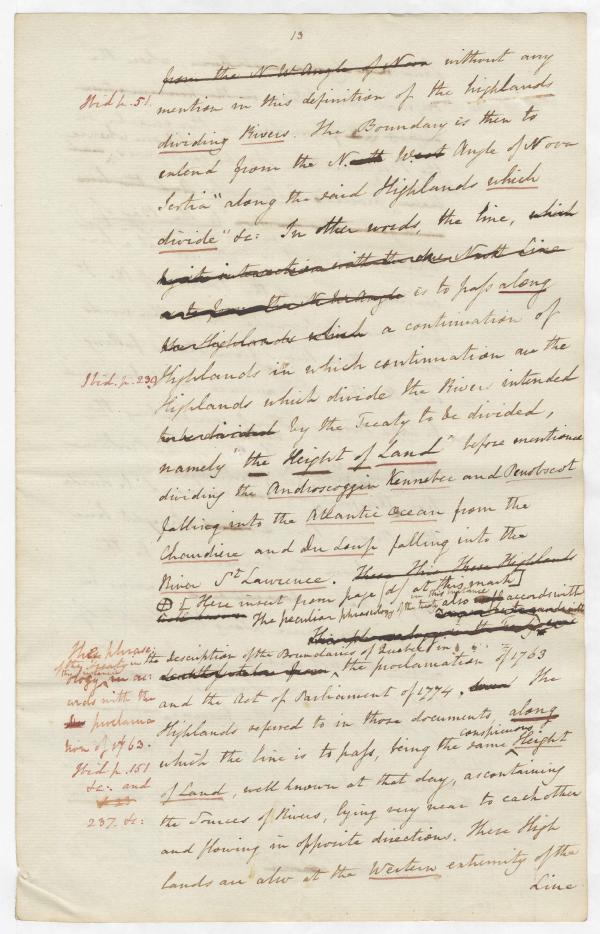 13
from the N. W Angle of Nova without any
Ibid p. 51.
mention in this definition of the highlands
dividing Rivers. The Boundary is then to
extend from the N. West Angle of Nova
Scotia "along the said Highlands which
divide" &c: In other words, the line, which
North Line
is to pass along
the Highlands which a continuation of
Ibid. p. 239
Highlands in which continuation are the
Highlands which divide the Rivers intended
to be divided by the Treaty to be divided,
namely "the Height of Land" before mentioned
dividing the Androscoggin Kennebec and Penobscot
falling into the Atlantic Ocean from the
Chaudiere and Du Loup falling into the
River St. Lawrence. These Highlands
[Here insert from page at this mark]
The peculiar phraseology of the treaty in this instance also accords with
the description of the Boundaries of Quebec in
the proclamation of 1763
and the Act of Parliament of 1774. The
Highlands referred to in those documents along
which the line is to pass, being the same conspicuous Height
of Land, well known at that day, as containing
the Sources of Rivers, lying very near to each other
and flowing in opposite directions. These High
lands are also at the Western extremity of the
Line
The phrase-
ology of the Treaty in this instance ac-
cords with the
proclama
tion of 1763.
Ibid p. 151
&c: and
237. &c: